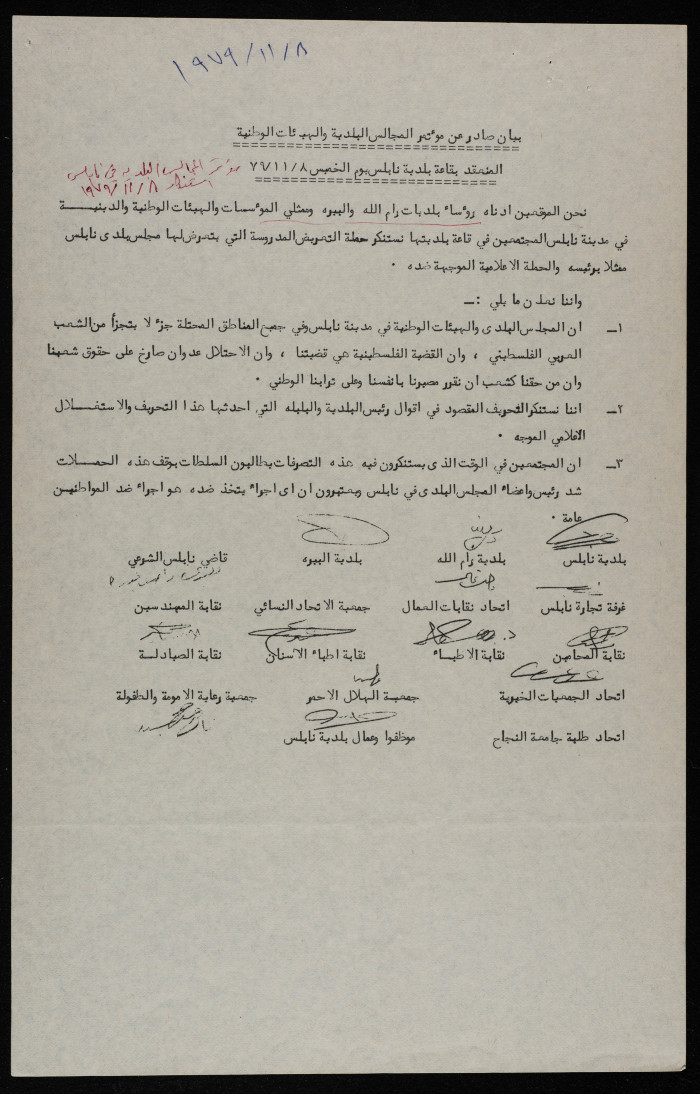 ١٩٧٩/١١/٨
بيان صادر عن مؤتمر المجالس البلدية والهيئات الوطنية
المنعقد بقاعة بلدية نابلس يوم الخميس ٧٩/١١/٨
مؤتمر المجالس البلدية في نابلس
استنكار ١٩٧٩/١١/٨
نحن الموقعين ادناه رؤساء بلديات رام الله والبيره وممثلي المؤسسات والهيئات الوطنية والدينيـــة
في مدينة نابلس المجتمعين في قاعة بلديتها نستنكر حملة التعريض المدروسة التي يتعرض لها مجلس بلدى نابلس
ممثلا برئيسه والحملة الاعلامية الموجهة ضده ٠
واننا نعلن ما يلي :ــ
١ــ ان المجلس البلدى والهيئات الوطنية في مدينة نابلس وفي جميع المناطق المحتلة جزء لا يتجزأ من الشعب
العربي الفلسطيني ، وان القضية الفلسطينية هي قضيتنا ، وان الاحتلال عدوان صارخ على حقوق شعبنا
وان من حقنا كشعب ان نقرر مصيرنا بانفسنا وعلى ترابنا الوطني ٠
٢ــ اننا نستنكر التحريف المقصود في اقوال رئيس البلدية والبلبله التي احدثها هذا التحريف والاستغــلال
الاعلامي الموجه ٠
٣ــ ان المجتمعين في الوقت الذى يستنكرون فيه هذه التصرفات يطالبون السلطات بوقف هذه الحمــلات
ضد رئيس واعضاء المجلس البلدى في نابلس ويعتبرون ان اى اجراء يتخذ ضده هو اجراء ضد المواطنيـن
عامة ٠
بلدية نابلس بلدية رام الله بلدية البيره قاضي نابلس الشرعي
غرفة تجارة نابلس اتحاد نقابات العمال جمعية الاتحاد النسائي نقابة المهندسين
نقابة المحامين نقابة الاطبـاء نقابة اطباء الاسنان نقابة الصيادلـة
اتحاد الجمعيات الخيرية جمعيـة الهلال الاحمر جمعية رعاية الامومة والطفولة
اتحاد طلبة جامعة النجاح موظفوا وعمال بلدية نابلس